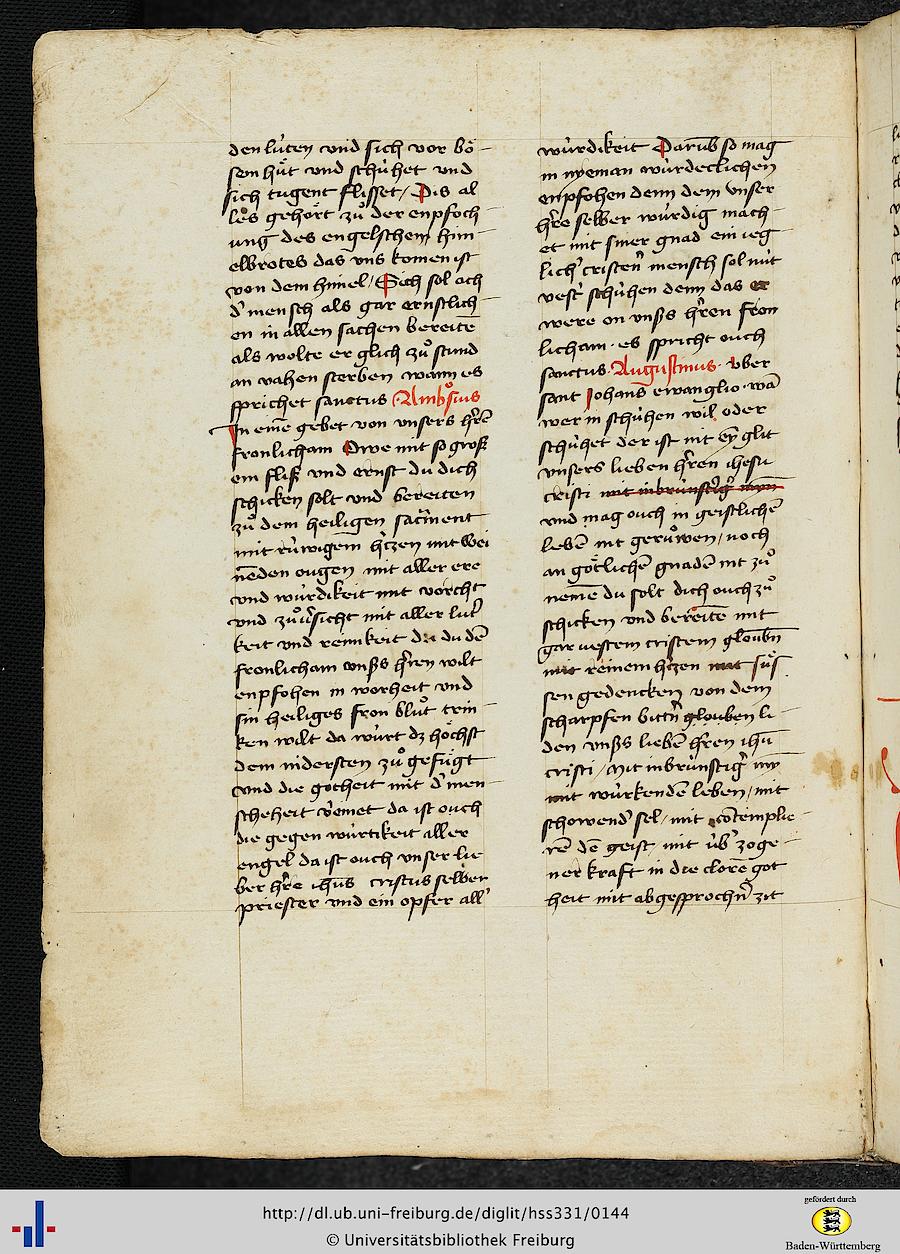 den lúten vnd sich vor bö-
sen hüt vnd schúhet vnd
sich tugent flisset / Dis al
les gehört zů der enpfoch-
ung des engelschen him-
elbrotes das vns komen ist
von dem himel / Sich sol och
d' mensch als gar ernstlich-
en in allen sachen bereitē
als wolte er glich zů stund
an vahen sterben wann es
sprichet sanctus Ambͦsius
In eime gebet von vnsers h'rē
fronlicham Owe mit so groß
em fliß vnd ernst du dich
schicken solt vnd bereiten
zů dem heiligen sacͣment
mit rúwigem h'czen mit wei
nēden ougen mit aller ere
vnd wúrdikeit mit vorcht
vnd zův'sicht mit aller lut'
keit vnd reinikeit du dē
fronlicham vnßs h'ren wilt
enpfohen in worheit vnd
sin heiliges fron blůt trin-
ken wilt da wúrt dz höchst
dem nidersten zů gefügt
vnd die gotheit mit d' men-
scheheit v'einet da ist ouch
die gegen wúrtikeit aller
engel da ist ouch vnser lie-
ber h're ihūs cristus selber
priester vnd ein opfer all'
wúrdikeit Darūb so mag
in nyeman wúrdecklichen
enpfohen denn dem vnser
h're selber wúrdig mach-
et mit siner gnad ein ieg-
lich' cristen mensch sol nút
vest' schúhen denn das er
were on vnßs h'ren fron
licham · es spricht ouch
sanctus · Augustinus · vber
sant Johans ewanglio · wā
wer in schúhen wil oder
schúhet der ist nit eÿ glit
vnsers lieben h'ren ihesu
cristi mit inbrúnstig'
vnd mag ouch in geistlichē
lebē nit gerůwen / noch
an götlichē gnadē nit zů
nemē du solt dich ouch zů
schicken vnd bereitē mit
gar vestem cristem gloubn̄
mit reinem h'czen mit süs-
sen gedencken von dem
scharpfen bittn̄ glouben li-
den vnßs liebē h'ren ihū
cristi / Mit inbrúnstig' mȳ
mit wúrkendē leben / mit
schowend' sel / mit cōtemplie-
rē dē geist / mit úb' zoge-
ner kraft in die clorē got
heit mit abgesprochn̄ zit
http://dl.ub.uni-freiburg.de/diglit/hss331/0144
© Universitätsbibliothek Freiburg
gefördert durch
Baden-Württemberg